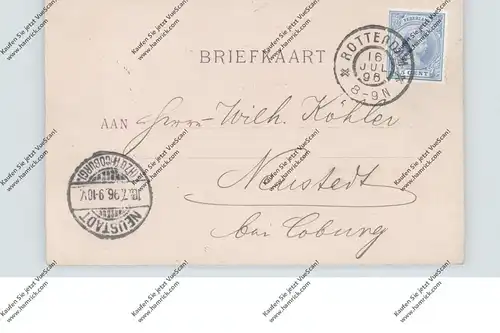 BRIEFKAART
NEDERLAND
CENT
ROTTERDAM
16
JUL
96
8-9N
AAN Herrn Wilh. Köhler
Neustedt
bei Coburg
NEUSTADT
18.7.96.9-10V.
(HRZGT.COBURG)
Kaufen Sie jetzt VueScan!
www.hamrick.com